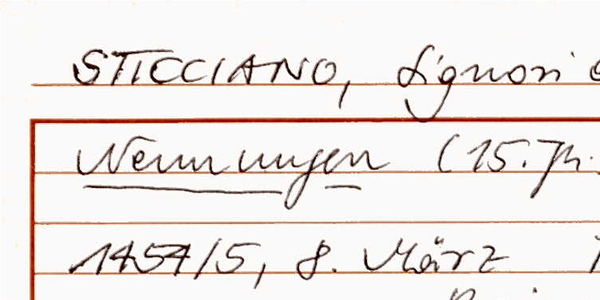 STICCIANO, Signori
Nennungen (15. Jh.
1454/5, 8. März